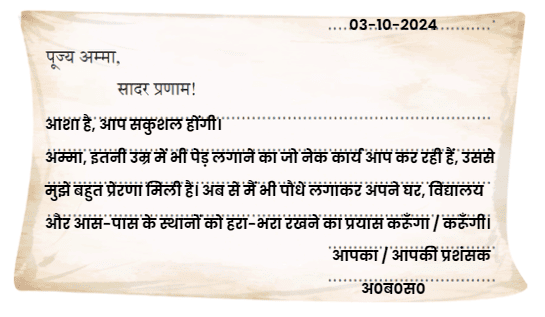 03-10-2024
पूज्य अम्मा,
सादर प्रणाम!
आशा है, आप सकुशल होंगी।
अम्मा, इतनी उम्र में भी पेड़ लगाने का जो नेक कार्य आप कर रही हैं, उससे
मुझे बहुत प्रेरणा मिली है। अब से मैं भी पौधे लगाकर अपने घर, विद्यालय
और आस-पास के स्थानों को हरा-भरा रखने का प्रयास करूँगा / करूँगी।
आपका / आपकी प्रशंसक
अ०ब०स०